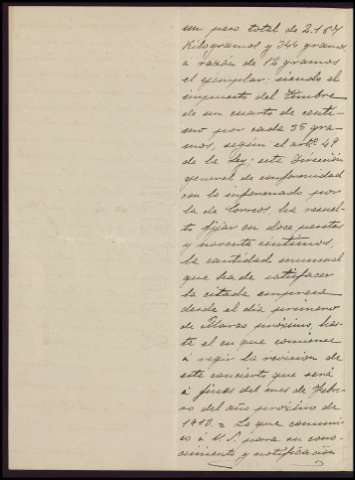 un peso total de 2.167
Kilogramos y 344 gramos
a razón de 12 gramos
el ejemplar: siendo el
impuesto del timbre
de un cuarto de centi-
mo por cada 35 gra-
mos, según el artº. 49
de la Ley; esta Dirección
general de conformidad
con lo informado por
la de Correos ha resuel-
to fijar en doce pesetas
y noventa céntimos,
la cantidad mensual
que ha de satisfacer
la citada empresa
desde el día primero
de Marzo próximo, has-
ta el en que comience
á regir la revisión de
este concierto que será
á fines del mes de Febre-
ro del año próximo de
1910. = Lo que comuni-
co á V.S. para su cono-
cimiento y notificación